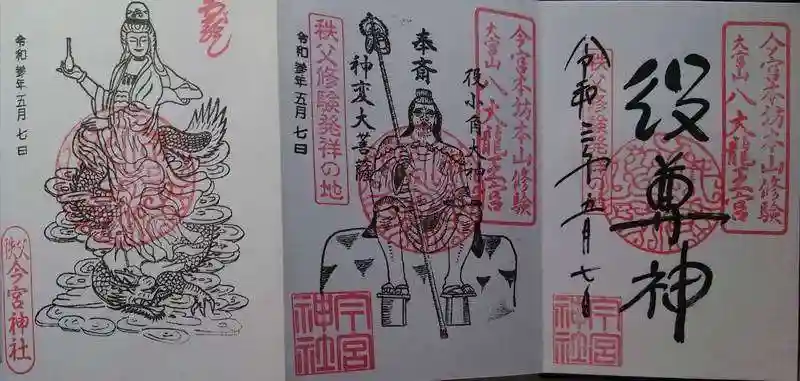 令和参年五月七日
秩父今宮神社
今宮本坊本山修験
大宮山八大龍王宮
奉斎
役小角大神
神変大菩薩
秩父修験発祥の地
令和参年五月七日
今宮神社
今宮本坊本山修験
大宮山八大龍王宮
役尊神
秩父修験発祥の地
令和三年五月七日
今宮神社